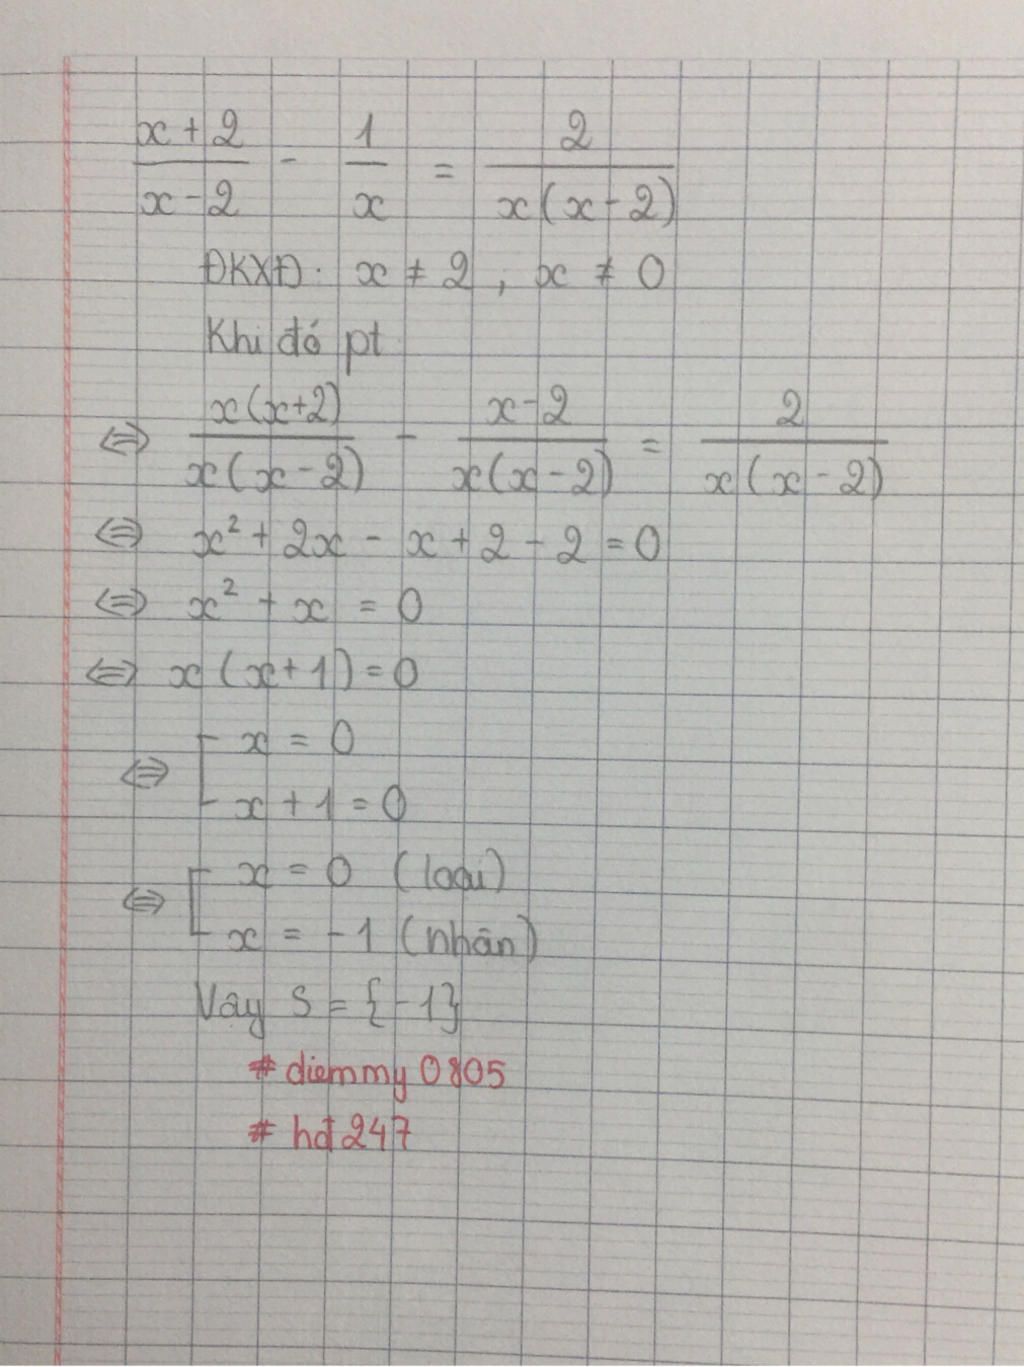 x + 2 / x - 2 - 1 / x = 2 / x(x - 2)
ĐKXĐ: x ≠ 2, x ≠ 0
Khi đó pt
⇔ x(x+2) / x(x - 2) - x - 2 / x(x - 2) = 2 / x(x - 2)
⇔ x² + 2x - x + 2 - 2 = 0
⇔ x² + x = 0
⇔ x(x + 1) = 0
⇔ [ x = 0
x + 1 = 0
⇔ [ x = 0 (loại)
x = -1 (nhận)
Vậy S = {-1}
# diemmy0805
# hd247